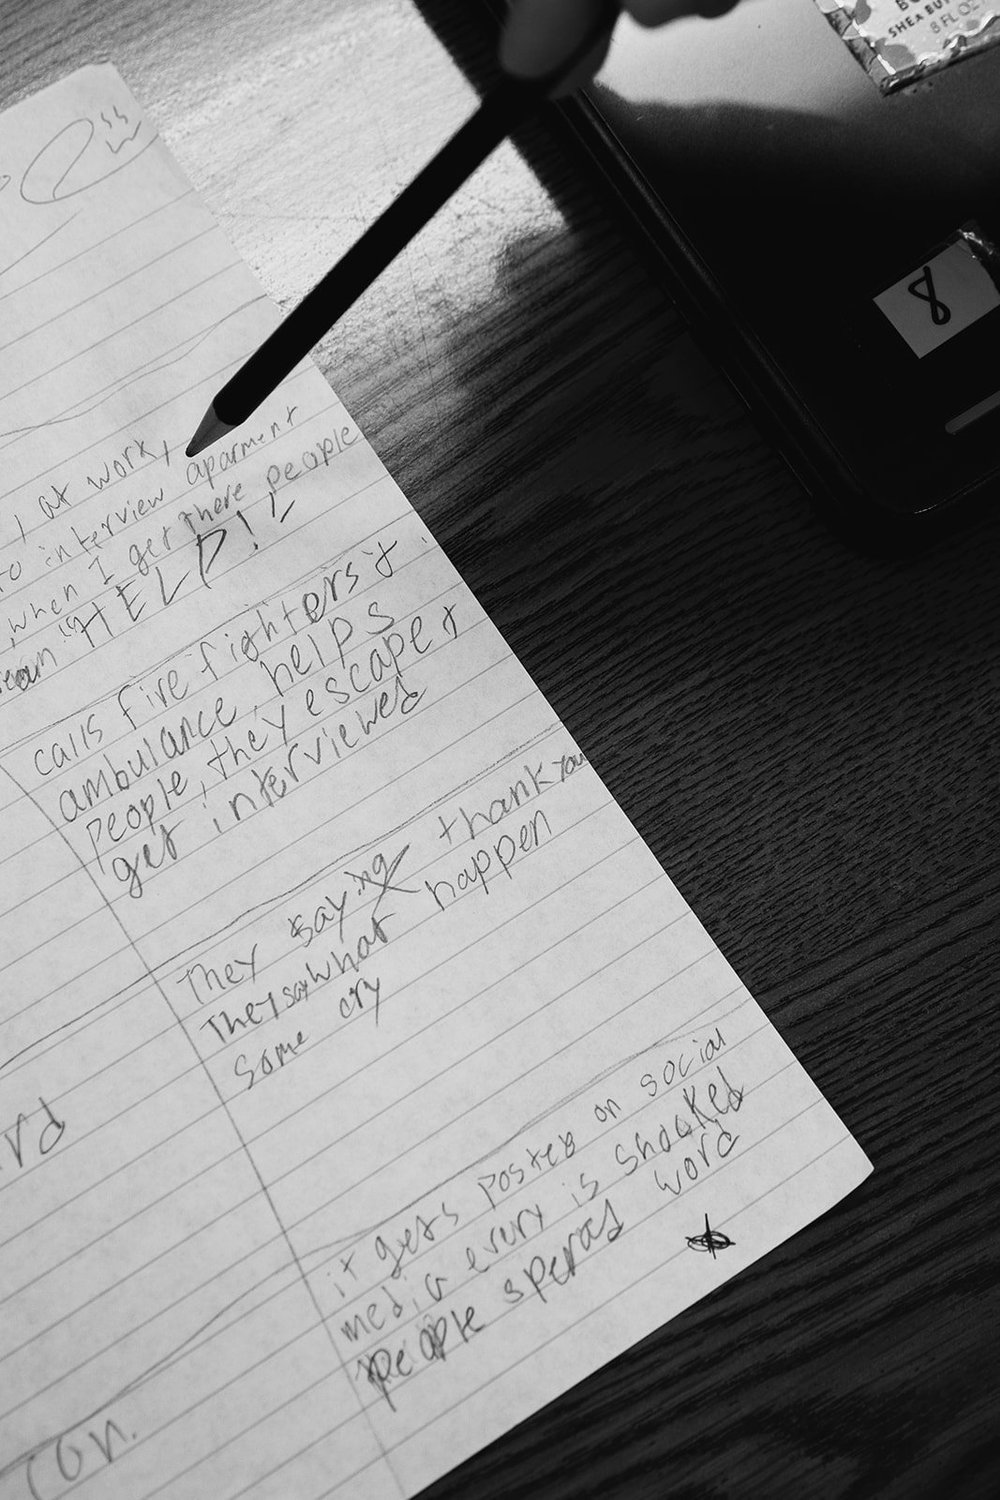 , at work,
to interview aparment
, when I get there people
"HELP!!
calls five fighters &
ambulance, helps
people, they escape &
get interviewed
They saying thank you
They say what happen
Some cry
it gets posted on social
media every is shocked
people spread word
rd
on.
BU
SHEA BUT
8 FL OZ
8